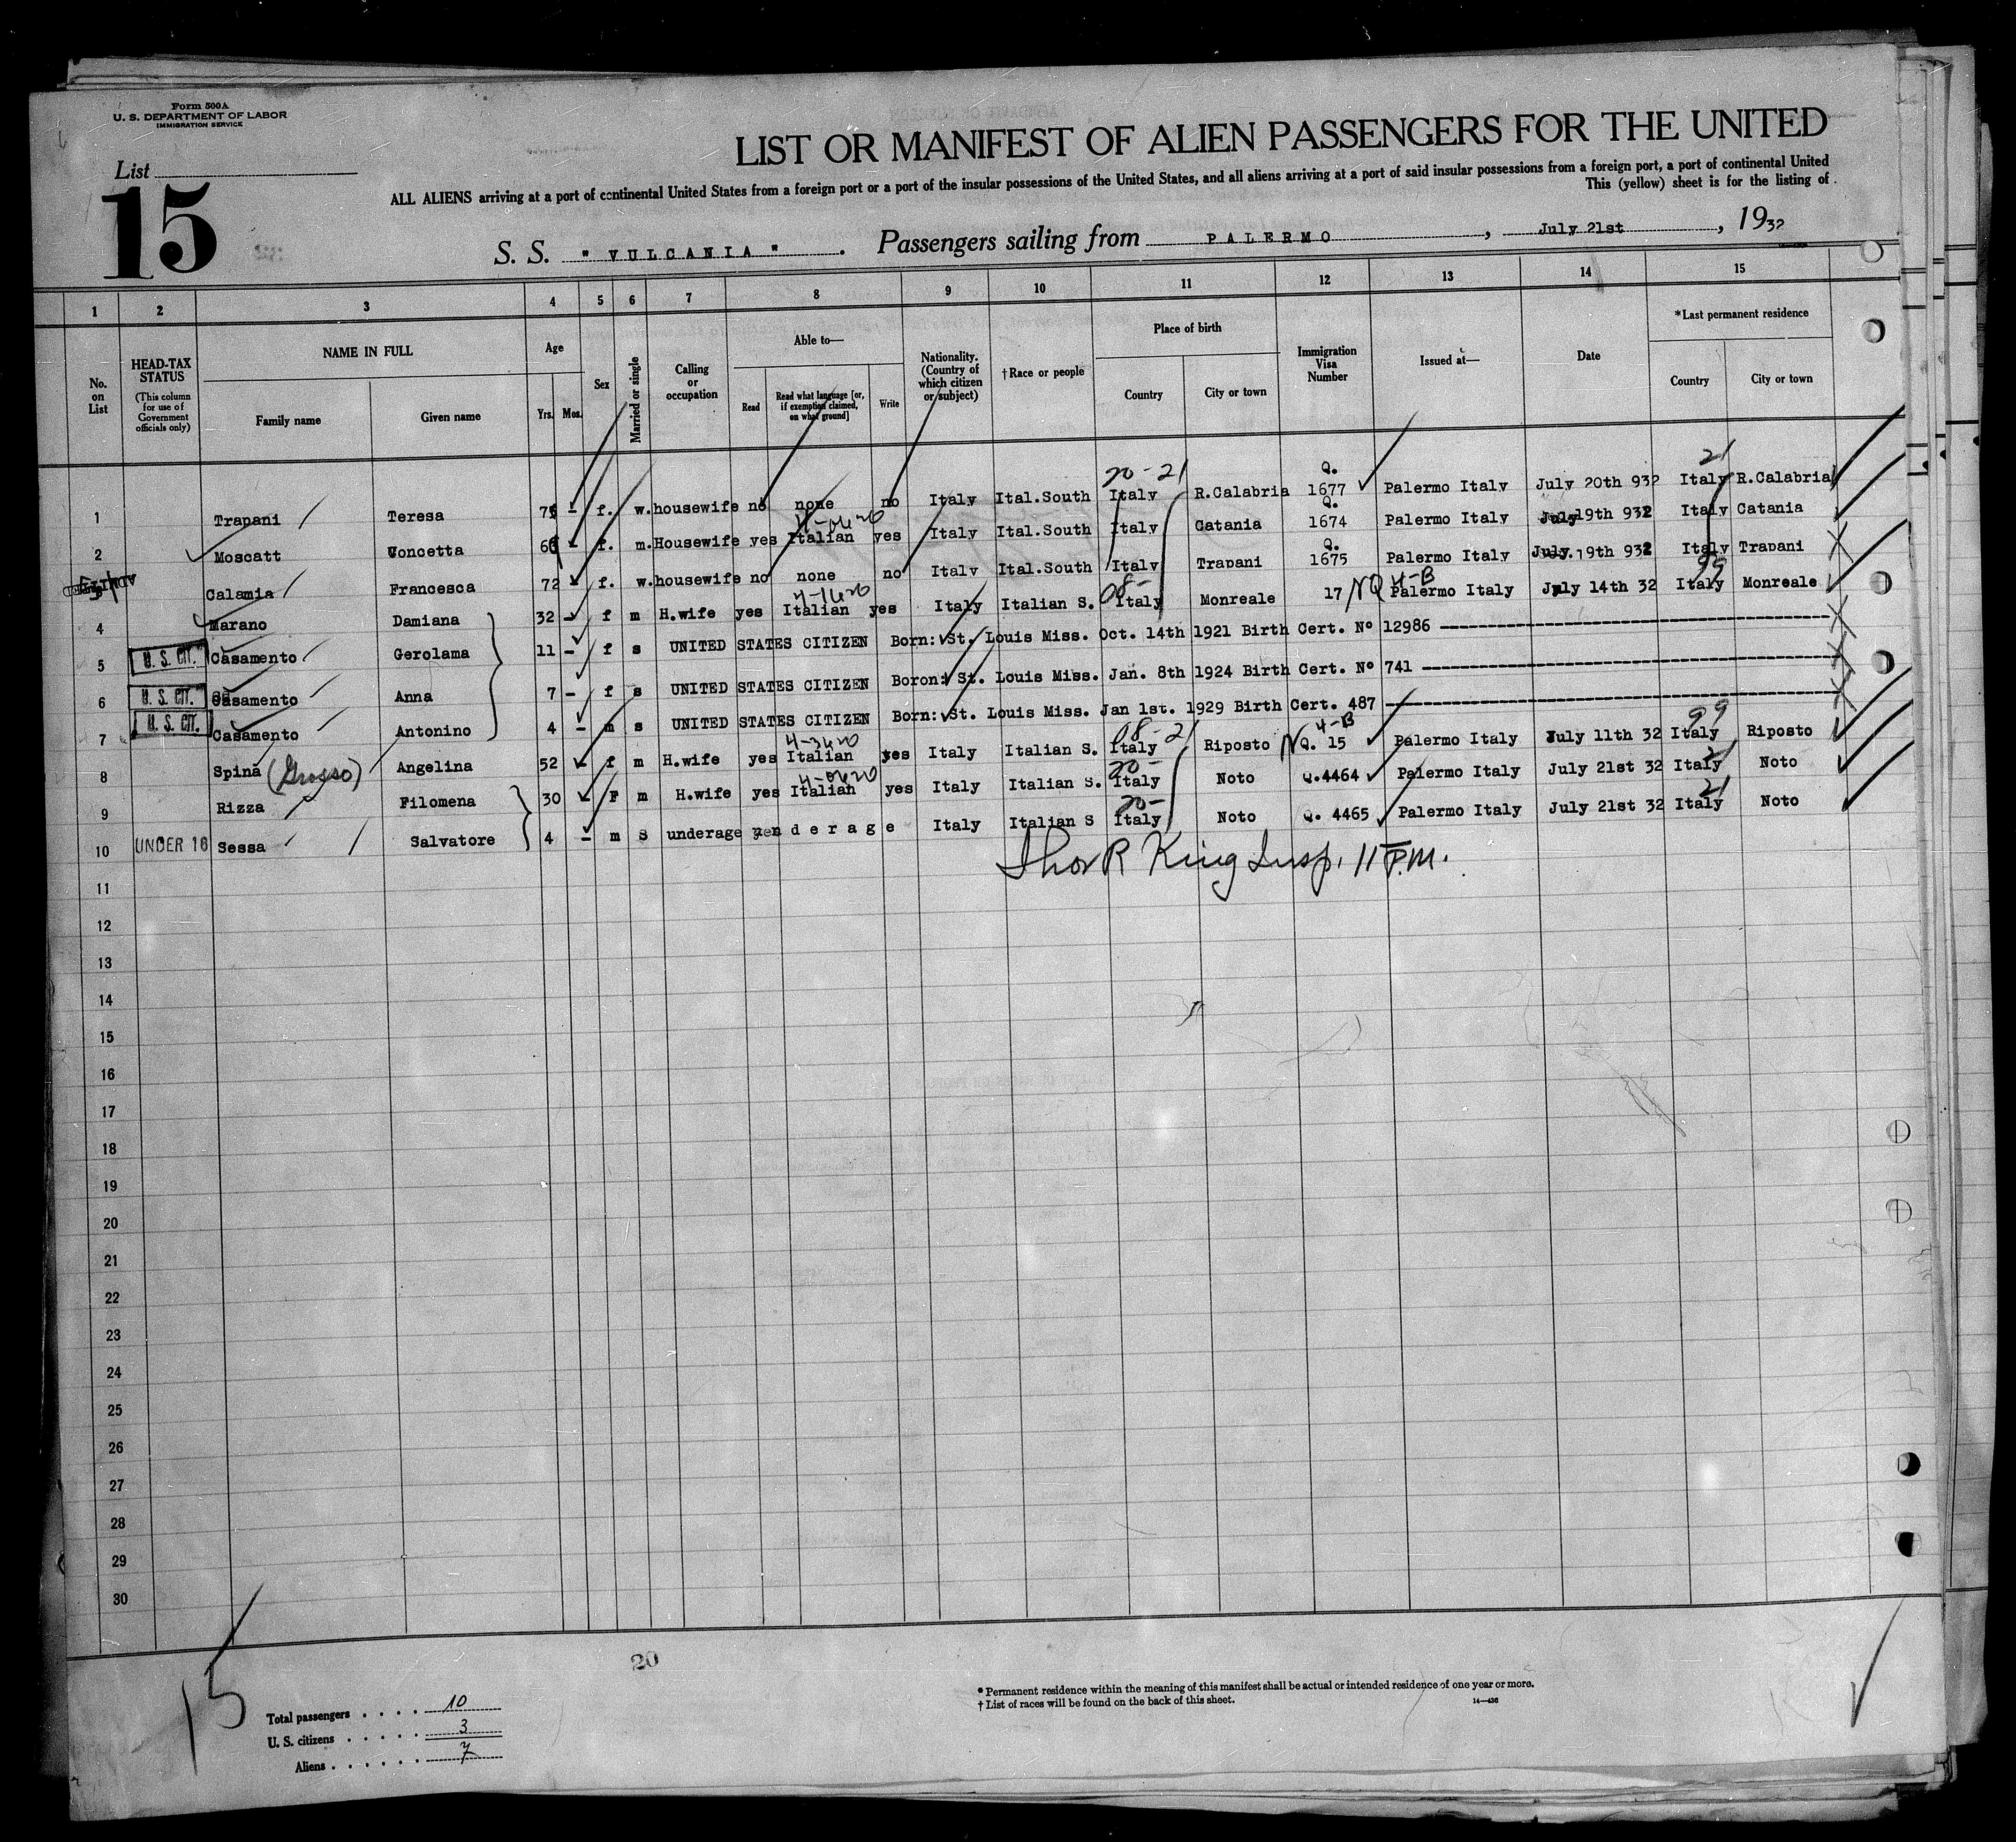 Form 500A
U. S. DEPARTMENT OF LABOR
IMMIGRATION SERVICE
List
15
LIST OR MANIFEST OF ALIEN PASSENGERS FOR THE UNITED
ALL ALIENS arriving at a port of continental United States from a foreign port or a port of the insular possessions of the United States, and all aliens arriving at a port of said insular possessions from a foreign port, a port of continental United
This (yellow) sheet is for the listing of
S. S. "VULCANIA". Passengers sailing from PALERMO, July 21st, 1932
1 2 3 4 5 6 7 8 9 10 11 12 13 14 15
No. on List
HEAD-TAX STATUS (This column for use of Government officials only)
NAME IN FULL
Family name Given name
Age
Yrs. Mos.
Sex
Married or single
Calling or occupation
Able to—
Read Read what language [or, if exemption claimed, on what ground] Write
Nationality. (Country of which citizen or subject)
†Race or people
Place of birth
Country City or town
Immigration Visa Number
Issued at—
Date
*Last permanent residence
Country City or town
20-21 Q. 21
1 Trapani Teresa f. w. housewife no none no Italy Ital.South Italy R.Calabria 1677 Palermo Italy July 20th 932 Italy R.Calabria
Q.
2 Moscatt Concetta f. m. Housewife yes Italian yes Italy Ital.South Italy Catania 1674 Palermo Italy July 19th 932 Italy Catania
Q.
Calamia Francesca 72 - f. w. housewife no none no Italy Ital.South Italy Trapani 1675 Palermo Italy July. 19th 932 Italy Trapani
08- NQ 4-B 99
4 Marano Damiana 32 - f m H.wife yes Italian yes Italy Italian S. Italy Monreale 17 Palermo Italy July 14th 32 Italy Monreale
5 U. S. CIT. Casamento Gerolama 11 - f s UNITED STATES CITIZEN Born: St. Louis Miss. Oct. 14th 1921 Birth Cert. Nº 12986
6 U. S. CIT. Casamento Anna 7 - f s UNITED STATES CITIZEN Boron: St. Louis Miss. Jan. 8th 1924 Birth Cert. Nº 741
7 U. S. CIT. Casamento Antonino 4 - m s UNITED STATES CITIZEN Born: St. Louis Miss. Jan 1st. 1929 Birth Cert. 487
08-21 4-B 99
8 Spina (Grosso) Angelina 52 f m H.wife yes Italian yes Italy Italian S. Italy Riposto NQ. 15 Palermo Italy July 11th 32 Italy Riposto
20- 21
9 Rizza Filomena 30 F m H.wife yes Italian yes Italy Italian S. Italy Noto Q.4464 Palermo Italy July 21st 32 Italy Noto
20- 21
10 UNDER 16 Sessa Salvatore 4 - m s underage underage Italy Italian S Italy Noto Q. 4465 Palermo Italy July 21st 32 Italy Noto
Thos R King Insp. 11 P.M.
11
12
13
14
15
16
17
18
19
20
21
22
23
24
25
26
27
28
29
30
15
20
Total passengers . . . . 10
U. S. citizens . . . . . 3
Aliens . . . . . . 7
* Permanent residence within the meaning of this manifest shall be actual or intended residence of one year or more.
† List of races will be found on the back of this sheet.
14—436